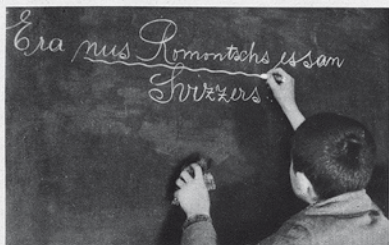 Era nus Romontschs essan
Svizzers.